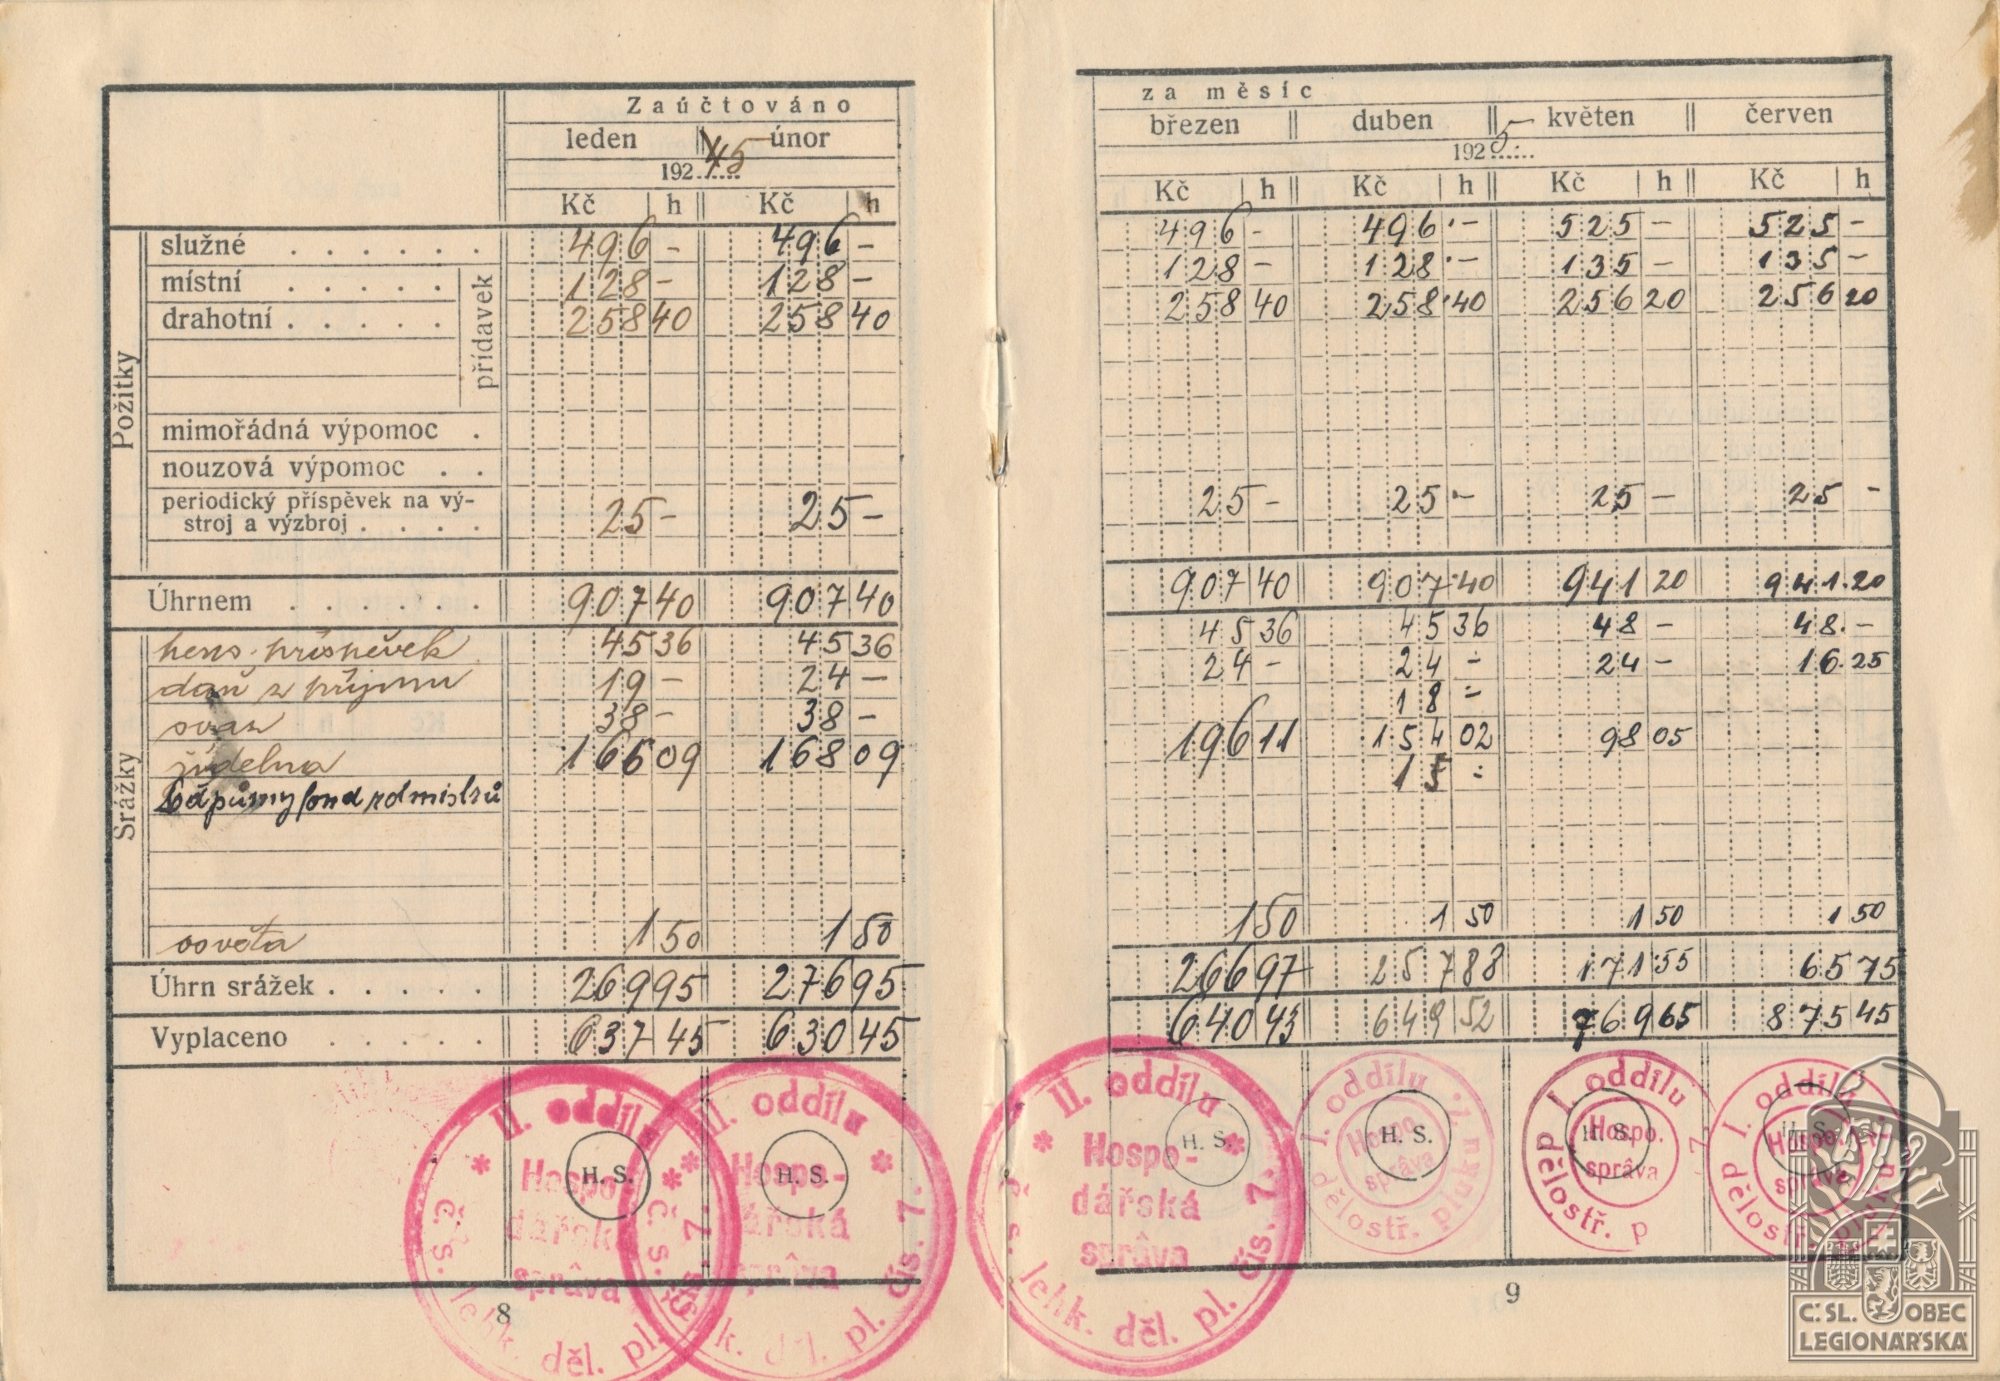 Zaúčtováno
leden únor
192 45
Kč h Kč h
Požitky
služné . . . . . . 496 - 496 -
místní . . . . . 128 - 128 -
drahotní . . . . . 258 40 258 40
přídavek
mimořádná výpomoc .
nouzová výpomoc . .
periodický příspěvek na vý-
stroj a výzbroj . . . . 25 - 25 -
Úhrnem . . . . . . 907 40 907 40
Srážky
pens. příspěvek 45 36 45 36
daň z příjmu 19 - 24 -
svaz 38 - 38 -
jídelna 166 09 168 09
Podpůrný fond rotmistrů
osvěta 1 50 1 50
Úhrn srážek . . . . . 269 95 276 95
Vyplaceno . . . . . 637 45 630 45
H. S. H. S.
II. oddílu
Hospo-
dářská
správa
č. s. lehk. děl. pl.
II. oddílu
Hospo-
dářská
správa
č. s. lehk. děl. pl. čís. 7.
8
za měsíc
březen duben květen červen
192 5
Kč h Kč h Kč h Kč h
496 - 496 - 525 - 525 -
128 - 128 - 135 - 135 -
258 40 258 40 256 20 256 20
25 - 25 - 25 - 25 -
907 40 907 40 941 20 941.20
45 36 45 36 48 - 48.-
24 - 24 - 24 - 16.25
18 =
196 11 154 02 98 05
15 =
1 50 1 50 1 50 1 50
266 97 257 88 171 55 65 75
640 43 649 52 769 65 875 45
H. S. H. S. H. S. H. S.
II. oddílu
Hospo-
dářská
správa
č. s. lehk. děl. pl. čís. 7.
I. oddílu
Hospo.
správa
dělostř. pluku 7.
I. oddílu
Hospo.
správa
dělostř. p 7.
I. oddílu
Hospo.
správa
dělostř. pluku
9
Č.SL. OBEC
LEGIONÁŘSKÁ